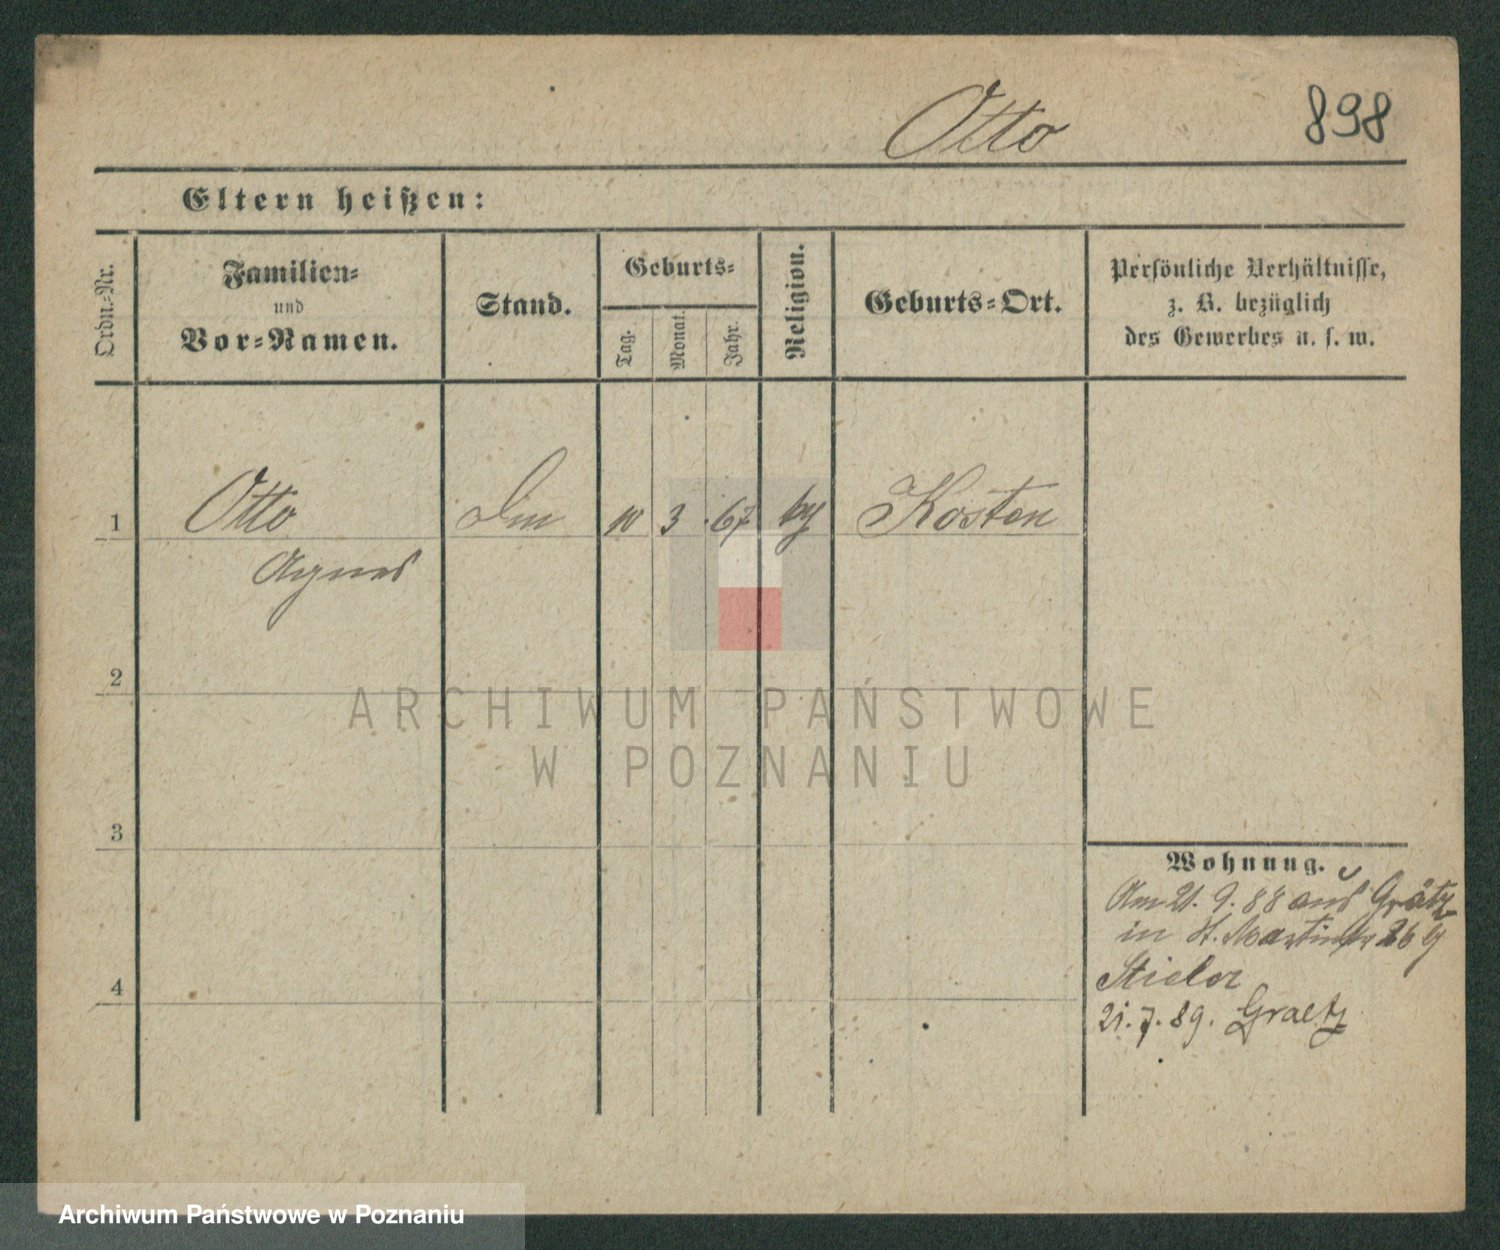 Otto 898
Eltern heißen:
Ordn.-Nr.
Familien-
und
Vor-Namen.
Stand.
Geburts-
Tag.
Monat.
Jahr.
Religion.
Geburts-Ort.
Persönliche Verhältnisse,
z. B. bezüglich
des Gewerbes u. s. w.
1 Otto 10 3 67 Kosten
Agnes
2
3
4
Wohnung.
Am 21. 9. 88 aus Grätz
in St. Martinstr 26
Stieler
21. 7. 89. Graetz
ARCHIWUM PAŃSTWOWE
W POZNANIU
Archiwum Państwowe w Poznaniu